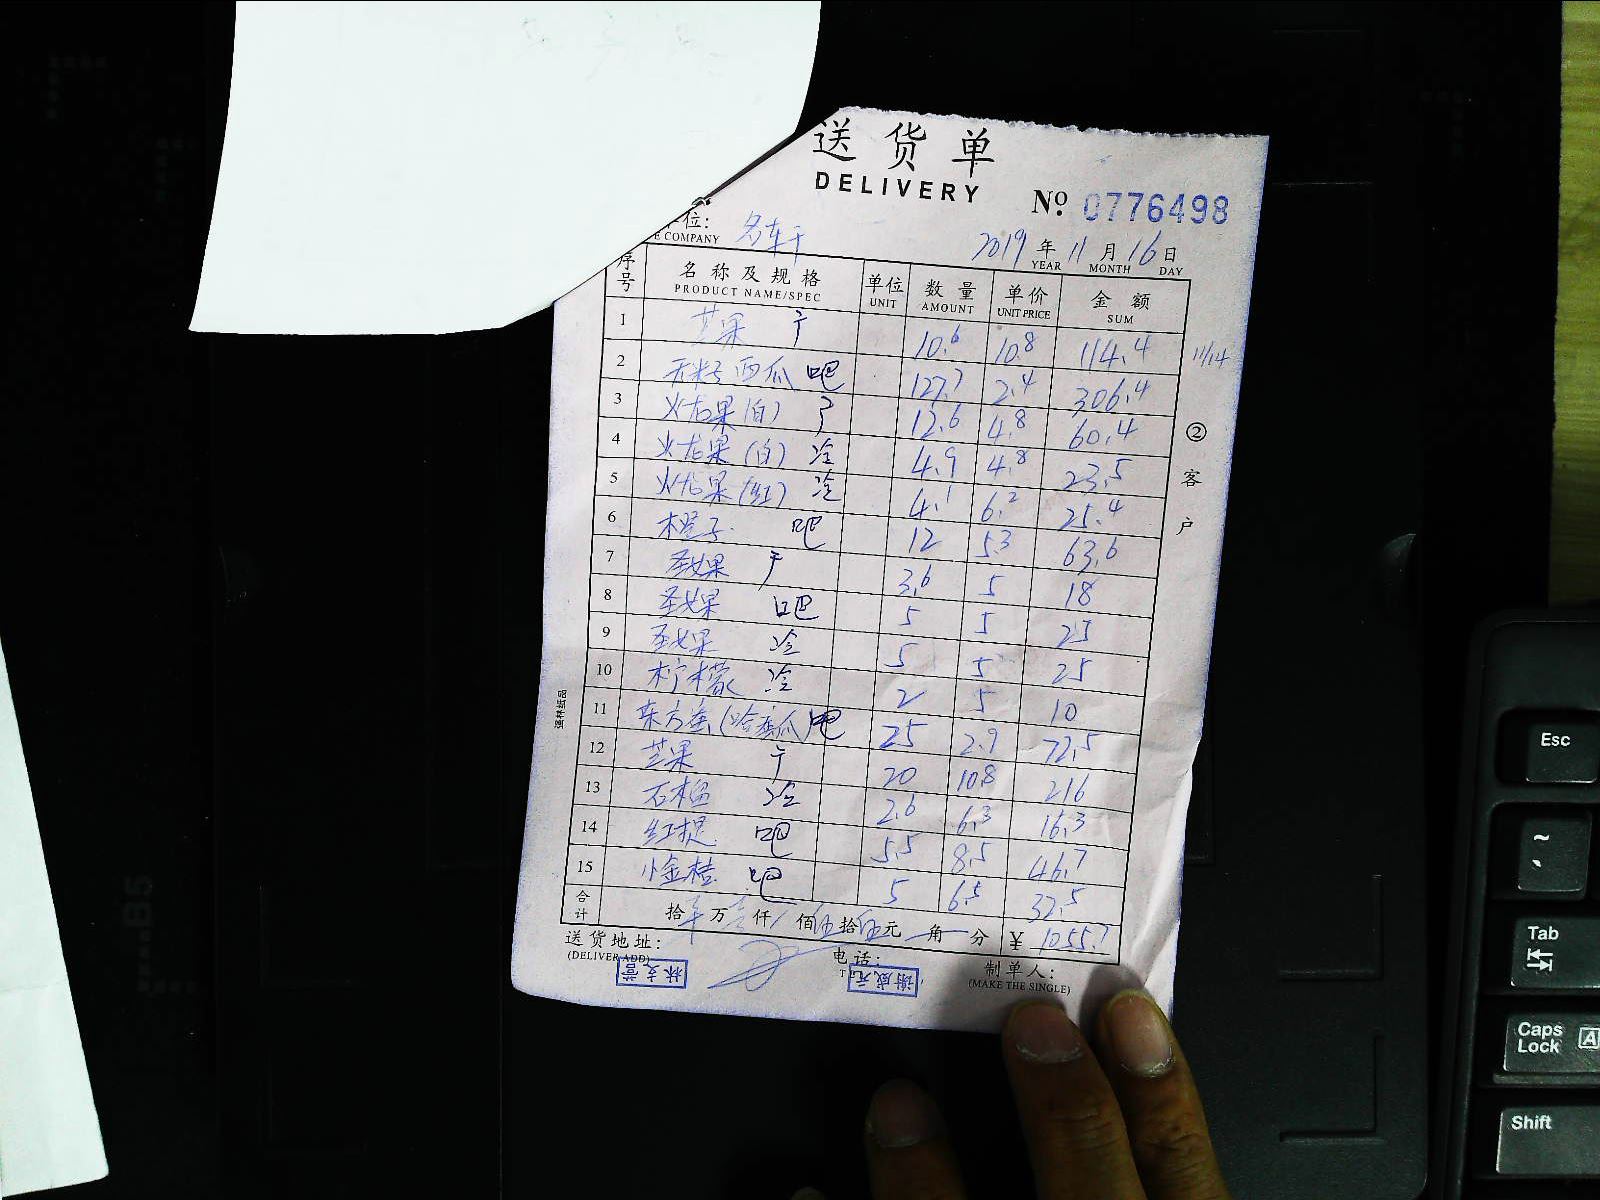 送货单
DELIVERY
№ 0776498
位: 名车干
E COMPANY
2019年11月16日
YEAR MONTH DAY
序号 名称及规格 单位 数量 单价 金额
PRODUCT NAME/SPEC UNIT AMOUNT UNIT PRICE SUM
1 芒果 干 10.6 10.8 114.4
11/14
2 无籽西瓜 吧 127.7 2.4 306.4
3 火龙果(白) 12.6 4.8 60.4
4 火龙果(白) 冷 4.9 4.8 23.5
5 火龙果(红) 冷 4.1 6.2 25.4
6 橙子 吧 12 5.3 63.6
7 圣女果 干 3.6 5 18
8 圣女果 吧 5 5 25
9 圣女果 冷 5 5 25
10 柠檬 冷 2 5 10
11 东方蜜(哈蜜瓜) 吧 25 2.9 72.5
12 芒果 干 20 10.8 216
13 石榴 冷 2.6 6.3 16.3
14 红提 吧 5.5 8.5 46.7
15 小金桔 吧 5 6.5 32.5
合计 拾 万 仟 佰伍拾伍元 角 分 ¥ 1055.7
送货地址: 电话: 制单人:
(DELIVER ADD) (MAKE THE SINGLE)
谢成元
②客户
强林纸品
Esc
~
Tab
Caps Lock A
Shift
B5